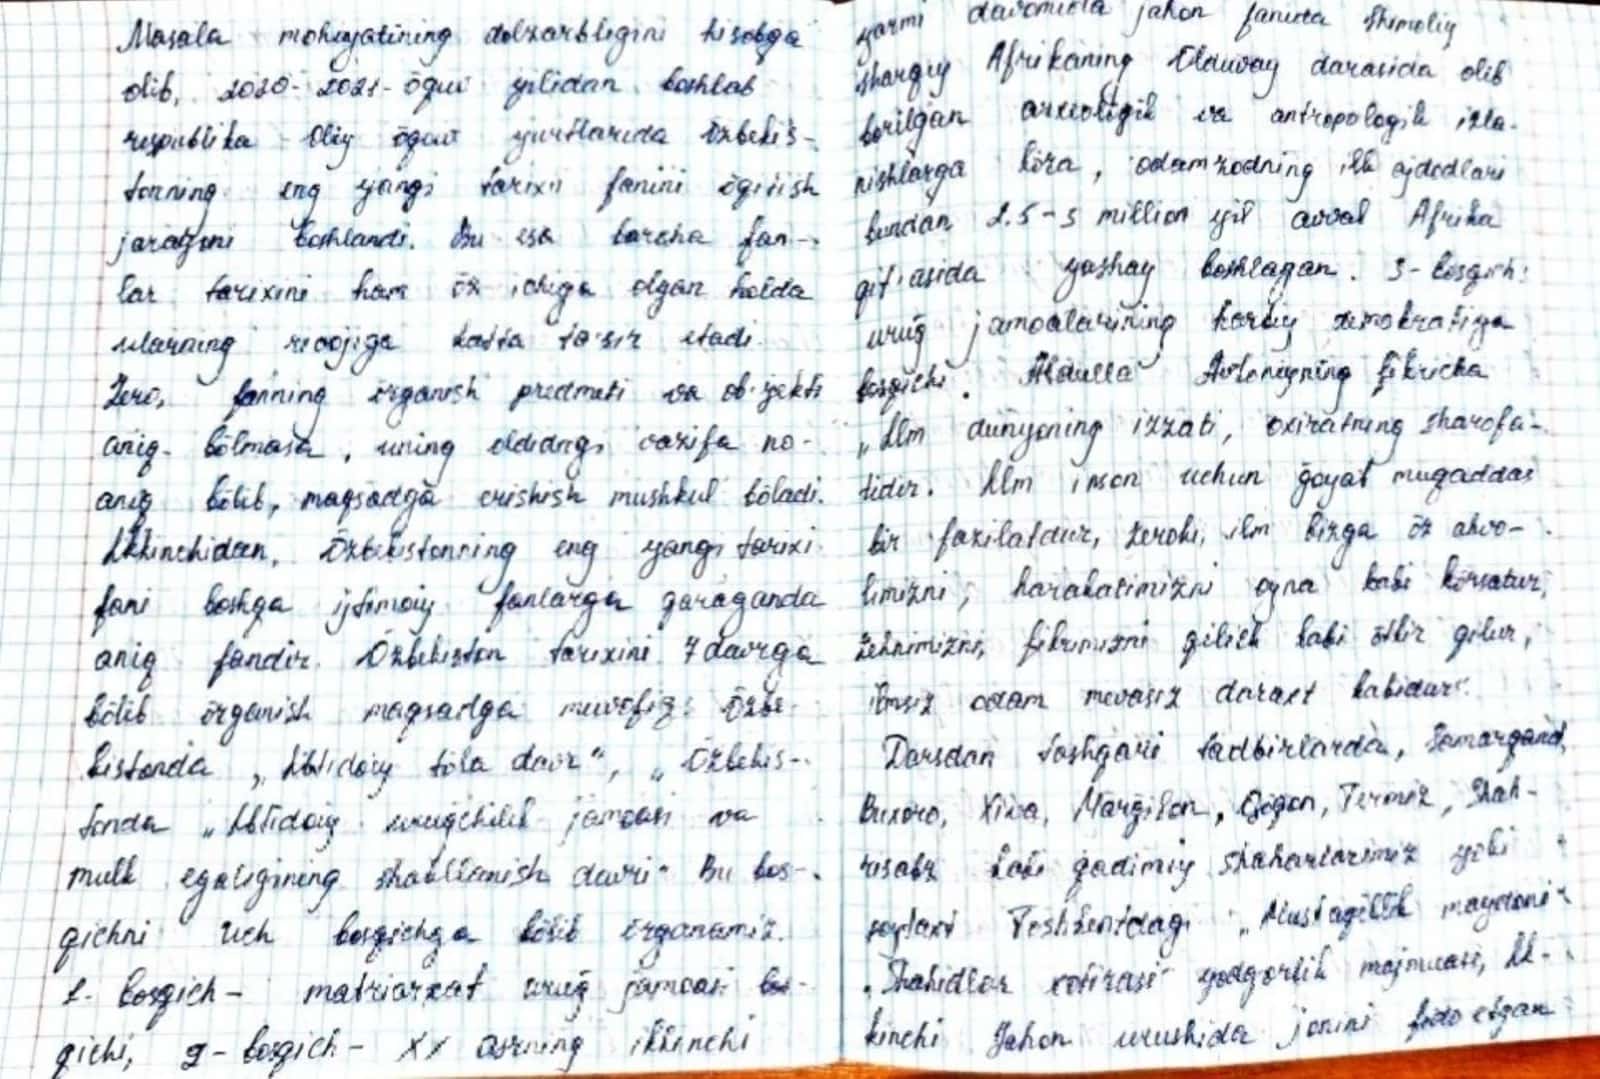 Masala mohiyatining dolzarbligini hisobga
olib, 2020-2021-ōquv yilidan boshlab
respublika Oliy ōquv yurtlarida Ōzbekis-
tonning eng yangi tarixi fanini ōqitish
jarayoni boshlandi. Bu esa barcha fan-
lar tarixini ham ōz ichiga olgan holda
ularning rivojiga katta ta'sir etadi.
Zero, fanning ōrganish predmeti va ob'yekti
aniq bōlmasa, uning oldidagi vazifa no-
aniq bōlib, maqsadga erishish mushkul bōladi.
Ikkinchidan, Ōzbekistonning eng yangi tarixi
fani boshqa ijtimoiy fanlarga qaraganda
aniq fandir. Ōzbekiston tarixini 7 davrga
bōlib ōrganish maqsadga muvofiq: Ōzbe-
kistonda „Ibtidoiy tōla davr“, „Ōzbekis-
tonda „Ibtidoiy urug̅chilik jamoasi va
mulk egaligining shakllanish davri“ Bu bos-
qichni uch bosqichga bōlib ōrganamiz.
1-bosqich - matriarxat urug̅ jamoasi bos-
qichi, 2-bosqich - XX asrning ikkinchi
yarmi davomida jahon fanida Shimoliy
sharqiy Afrikaning Olduvay darasida olib
borilgan arxeologik va antropologik izla-
nishlarga kōra, odamzodning ilk ajdodlari
bundan 2.5-3 million yil avval Afrika
qit'asida yashay boshlagan. 3-bosqich:
urug̅ jamoalarining harbiy demokratiya
bosqichi. Abdulla Avloniyning fikricha
„Ilm dunyoning izzati, oxiratning sharofa-
tidir. Ilm inson uchun g̅oyat muqaddas
bir fazilatdur, zeroki, ilm bizga ōz ahvo-
limizni, harakatimizni oyna kabi kōrsatur,
zehnimizni, fikrimizni qilich kabi ōtkir qilur,
ilmsiz odam mevasiz daraxt kabidur“.
Darsdan tashqari tadbirlarda, Samarqand,
Buxoro, Xiva, Marg̅ilon, Qōqon, Termiz, Shah-
risabz kabi qadimiy shaharlarimiz yoki
poytaxt Toshkentdagi „Mustaqillik maydoni“
„Shahidlar xotirasi“ yodgorlik majmuasi, Ik-
kinchi Jahon urushida jonini fido etgan